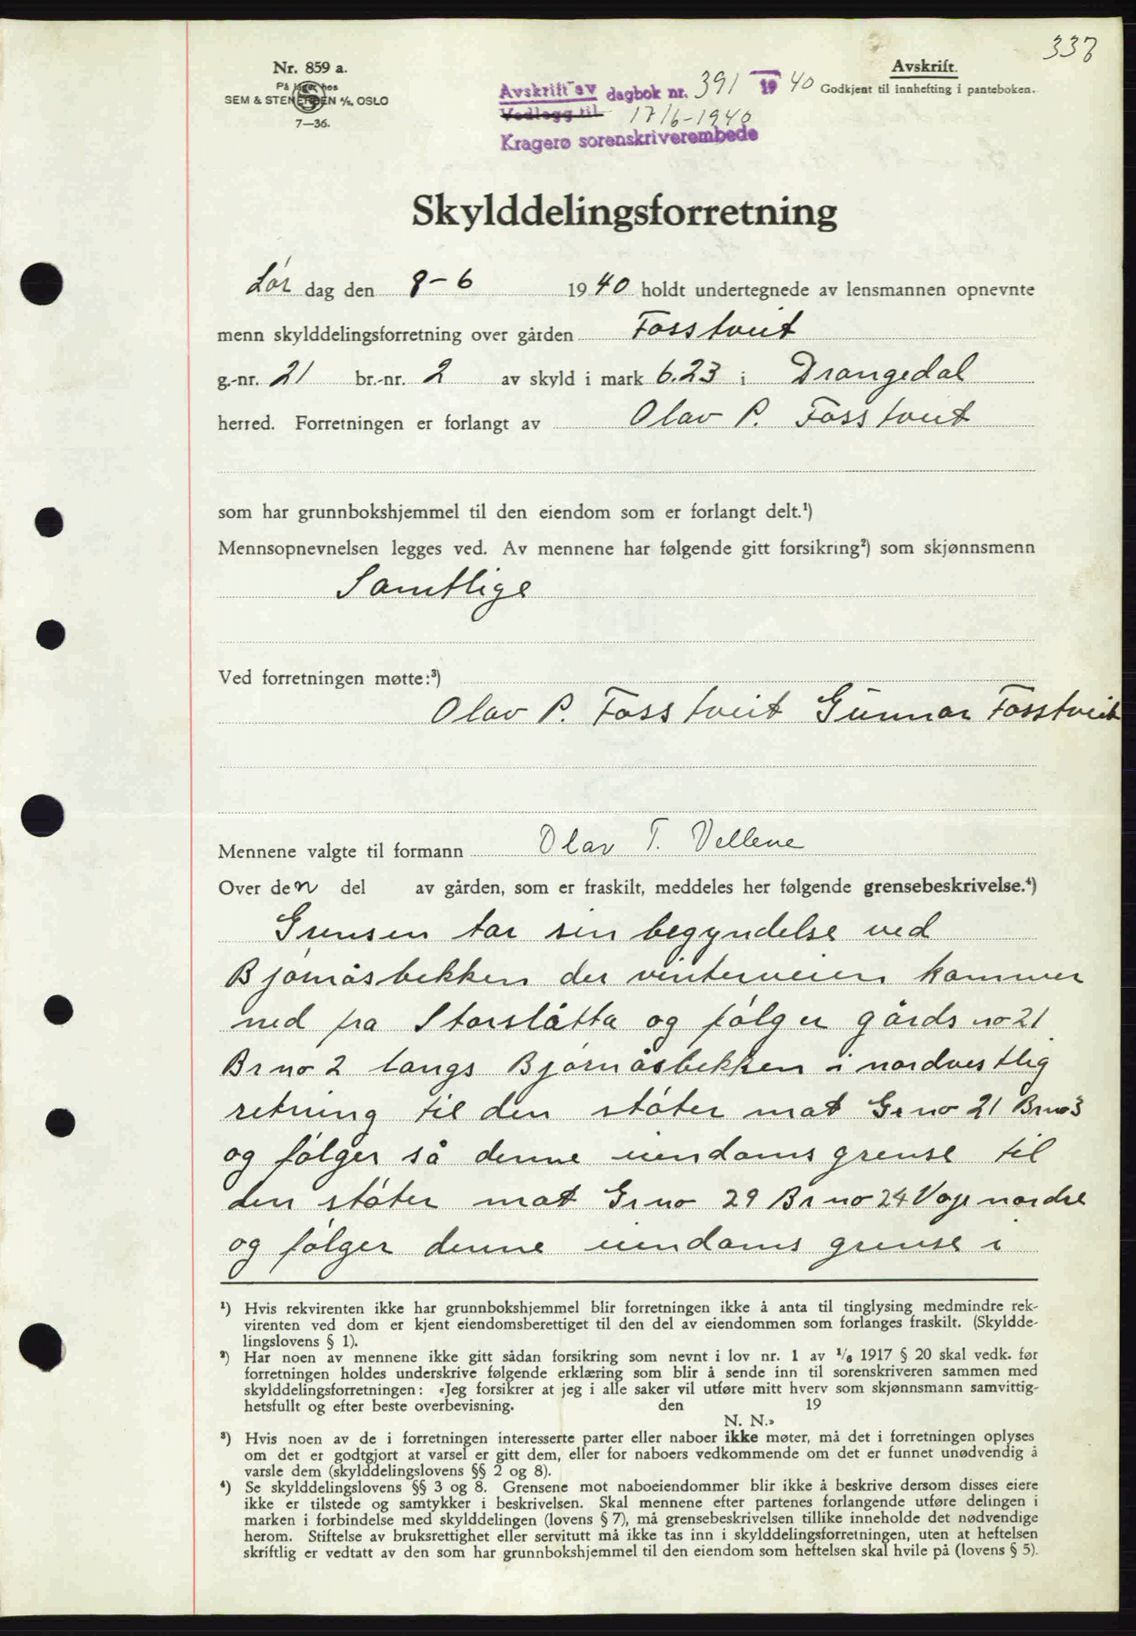 337
Nr. 859 a.
På lager hos
SEM & STENERSEN A/S, OSLO
7—36.
Avskrift.
Godkjent til innhefting i panteboken.
Avskrift av dagbok nr. 391 19 40
Vedlegg til 17/6-1940
Kragerø sorenskriverembede
Skylddelingsforretning
Lør dag den 8-6 1940 holdt undertegnede av lensmannen opnevnte
menn skylddelingsforretning over gården Fosstveit
g.-nr. 21 br.-nr. 2 av skyld i mark 6.23 i Drangedal
herred. Forretningen er forlangt av Olav P. Fosstveit
som har grunnbokshjemmel til den eiendom som er forlangt delt.¹)
Mennsopnevnelsen legges ved. Av mennene har følgende gitt forsikring²) som skjønnsmenn
Samtlige
Ved forretningen møtte:³)
Olav P. Fosstveit Gunnar Fosstveit
Mennene valgte til formann Olav T. Vellene
Over den del av gården, som er fraskilt, meddeles her følgende grensebeskrivelse.⁴)
Grensen tar sin begyndelse ved
Bjørnåsbekken der vinterveien kommer
ned fra Storslåtta og følger gårds no 21
Br no 2 langs Bjørnåsbekken i nordvestlig
retning til den støter mot Gr no 21 Br no 3
og følger så denne eiendoms grense til
den støter mot Gr no 29 Br no 24 Voje nordre
og følger denne eiendoms grense i
¹) Hvis rekvirenten ikke har grunnbokshjemmel blir forretningen ikke å anta til tinglysing medmindre rek-
virenten ved dom er kjent eiendomsberettiget til den del av eiendommen som forlanges fraskilt. (Skyldde-
lingslovens § 1).
²) Har noen av mennene ikke gitt sådan forsikring som nevnt i lov nr. 1 av 1/6 1917 § 20 skal vedk. før
forretningen holdes underskrive følgende erklæring som blir å sende inn til sorenskriveren sammen med
skylddelingsforretningen: «Jeg forsikrer at jeg i alle saker vil utføre mitt hverv som skjønnsmann samvittig-
hetsfullt og efter beste overbevisning. den 19
N. N.»
³) Hvis noen av de i forretningen interesserte parter eller naboer ikke møter, må det i forretningen oplyses
om det er godtgjort at varsel er gitt dem, eller for naboers vedkommende om det er funnet unødvendig å
varsle dem (skylddelingslovens §§ 2 og 8).
⁴) Se skylddelingslovens §§ 3 og 8. Grensene mot naboeiendommer blir ikke å beskrive dersom disses eiere
ikke er tilstede og samtykker i beskrivelsen. Skal mennene efter partenes forlangende utføre delingen i
marken i forbindelse med skylddelingen (lovens § 7), må grensebeskrivelsen tillike inneholde det nødvendige
herom. Stiftelse av bruksrettighet eller servitutt må ikke tas inn i skylddelingsforretningen, uten at heftelsen
skriftlig er vedtatt av den som har grunnbokshjemmel til den eiendom som heftelsen skal hvile på (lovens § 5).